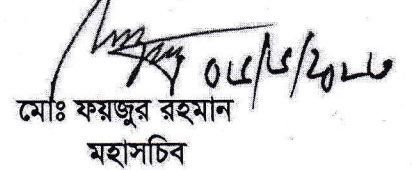 ০৫/৫/২০২৩
মোঃ ফয়জুর রহমান
মহাসচিব